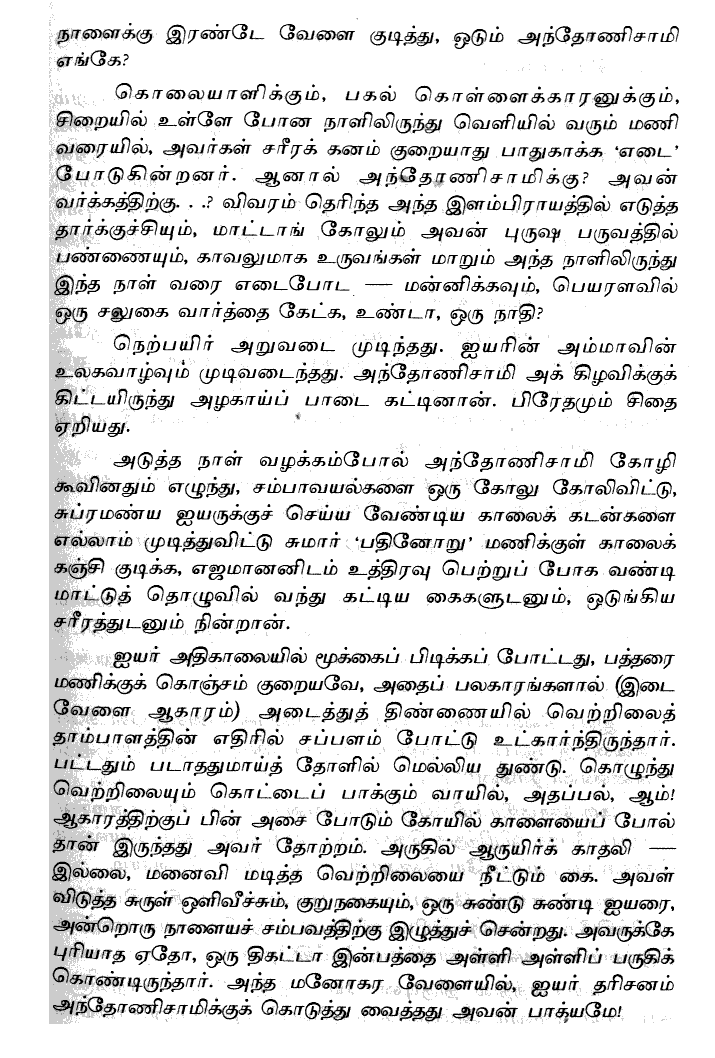 நாளைக்கு இரண்டே வேளை குடித்து, ஒடும் அந்தோணிசாமி
எங்கே?
கொலையாளிக்கும், பகல் கொள்ளைக்காரனுக்கும்,
சிறையில் உள்ளே போன நாளிலிருந்து வெளியில் வரும் மணி
வரையில், அவர்கள் சரீரக் கனம் குறையாது பாதுகாக்க ‘எடை’
போடுகின்றனர். ஆனால் அந்தோணிசாமிக்கு? அவன்
வர்க்கத்திற்கு. . .? விவரம் தெரிந்த அந்த இளம்பிராயத்தில் எடுத்த
தார்க்குச்சியும், மாட்டாங் கோலும் அவன் புருஷ பருவத்தில்
பண்ணையும், காவலுமாக உருவங்கள் மாறும் அந்த நாளிலிருந்து
இந்த நாள் வரை எடைபோட — மன்னிக்கவும், பெயரளவில்
ஒரு சலுகை வார்த்தை கேட்க, உண்டா, ஒரு நாதி?
நெற்பயிர் அறுவடை முடிந்தது. ஐயரின் அம்மாவின்
உலகவாழ்வும் முடிவடைந்தது. அந்தோணிசாமி அக் கிழவிக்குக்
கிட்டயிருந்து அழகாய்ப் பாடை கட்டினான். பிரேதமும் சிதை
ஏறியது.
அடுத்த நாள் வழக்கம்போல் அந்தோணிசாமி கோழி
கூவினதும் எழுந்து, சம்பாவயல்களை ஒரு கோலு கோலிவிட்டு,
சுப்ரமண்ய ஐயருக்குச் செய்ய வேண்டிய காலைக் கடன்களை
எல்லாம் முடித்துவிட்டு சுமார் ‘பதினோறு’ மணிக்குள் காலைக்
கஞ்சி குடிக்க, எஜமானனிடம் உத்திரவு பெற்றுப் போக வண்டி
மாட்டுத் தொழுவில் வந்து கட்டிய கைகளுடனும், ஒடுங்கிய
சரீரத்துடனும் நின்றான்.
ஐயர் அதிகாலையில் மூக்கைப் பிடிக்கப் போட்டது, பத்தரை
மணிக்குக் கொஞ்சம் குறையவே, அதைப் பலகாரங்களால் (இடை
வேளை ஆகாரம்) அடைத்துத் திண்ணையில் வெற்றிலைத்
தாம்பாளத்தின் எதிரில் சப்பளம் போட்டு உட்கார்ந்திருந்தார்.
பட்டதும் படாததுமாய்த் தோளில் மெல்லிய துண்டு. கொழுந்து
வெற்றிலையும் கொட்டைப் பாக்கும் வாயில், அதப்பல், ஆம்!
ஆகாரத்திற்குப் பின் அசை போடும் கோயில் காளையைப் போல்
தான் இருந்தது அவர் தோற்றம். அருகில் ஆருயிர்க் காதலி —
இல்லை, மனைவி மடித்த வெற்றிலையை நீட்டும் கை. அவள்
விடுத்த சுருள் ஒளிவீச்சும், குறுநகையும், ஒரு சுண்டு சுண்டி ஐயரை,
அன்றொரு நாளையச் சம்பவத்திற்கு இழுத்துச் சென்றது. அவருக்கே
புரியாத ஏதோ, ஒரு திகட்டா இன்பத்தை அள்ளி அள்ளிப் பருகிக்
கொண்டிருந்தார். அந்த மனோகர வேளையில், ஐயர் தரிசனம்
அந்தோணிசாமிக்குக் கொடுத்து வைத்தது அவன் பாக்யமே!